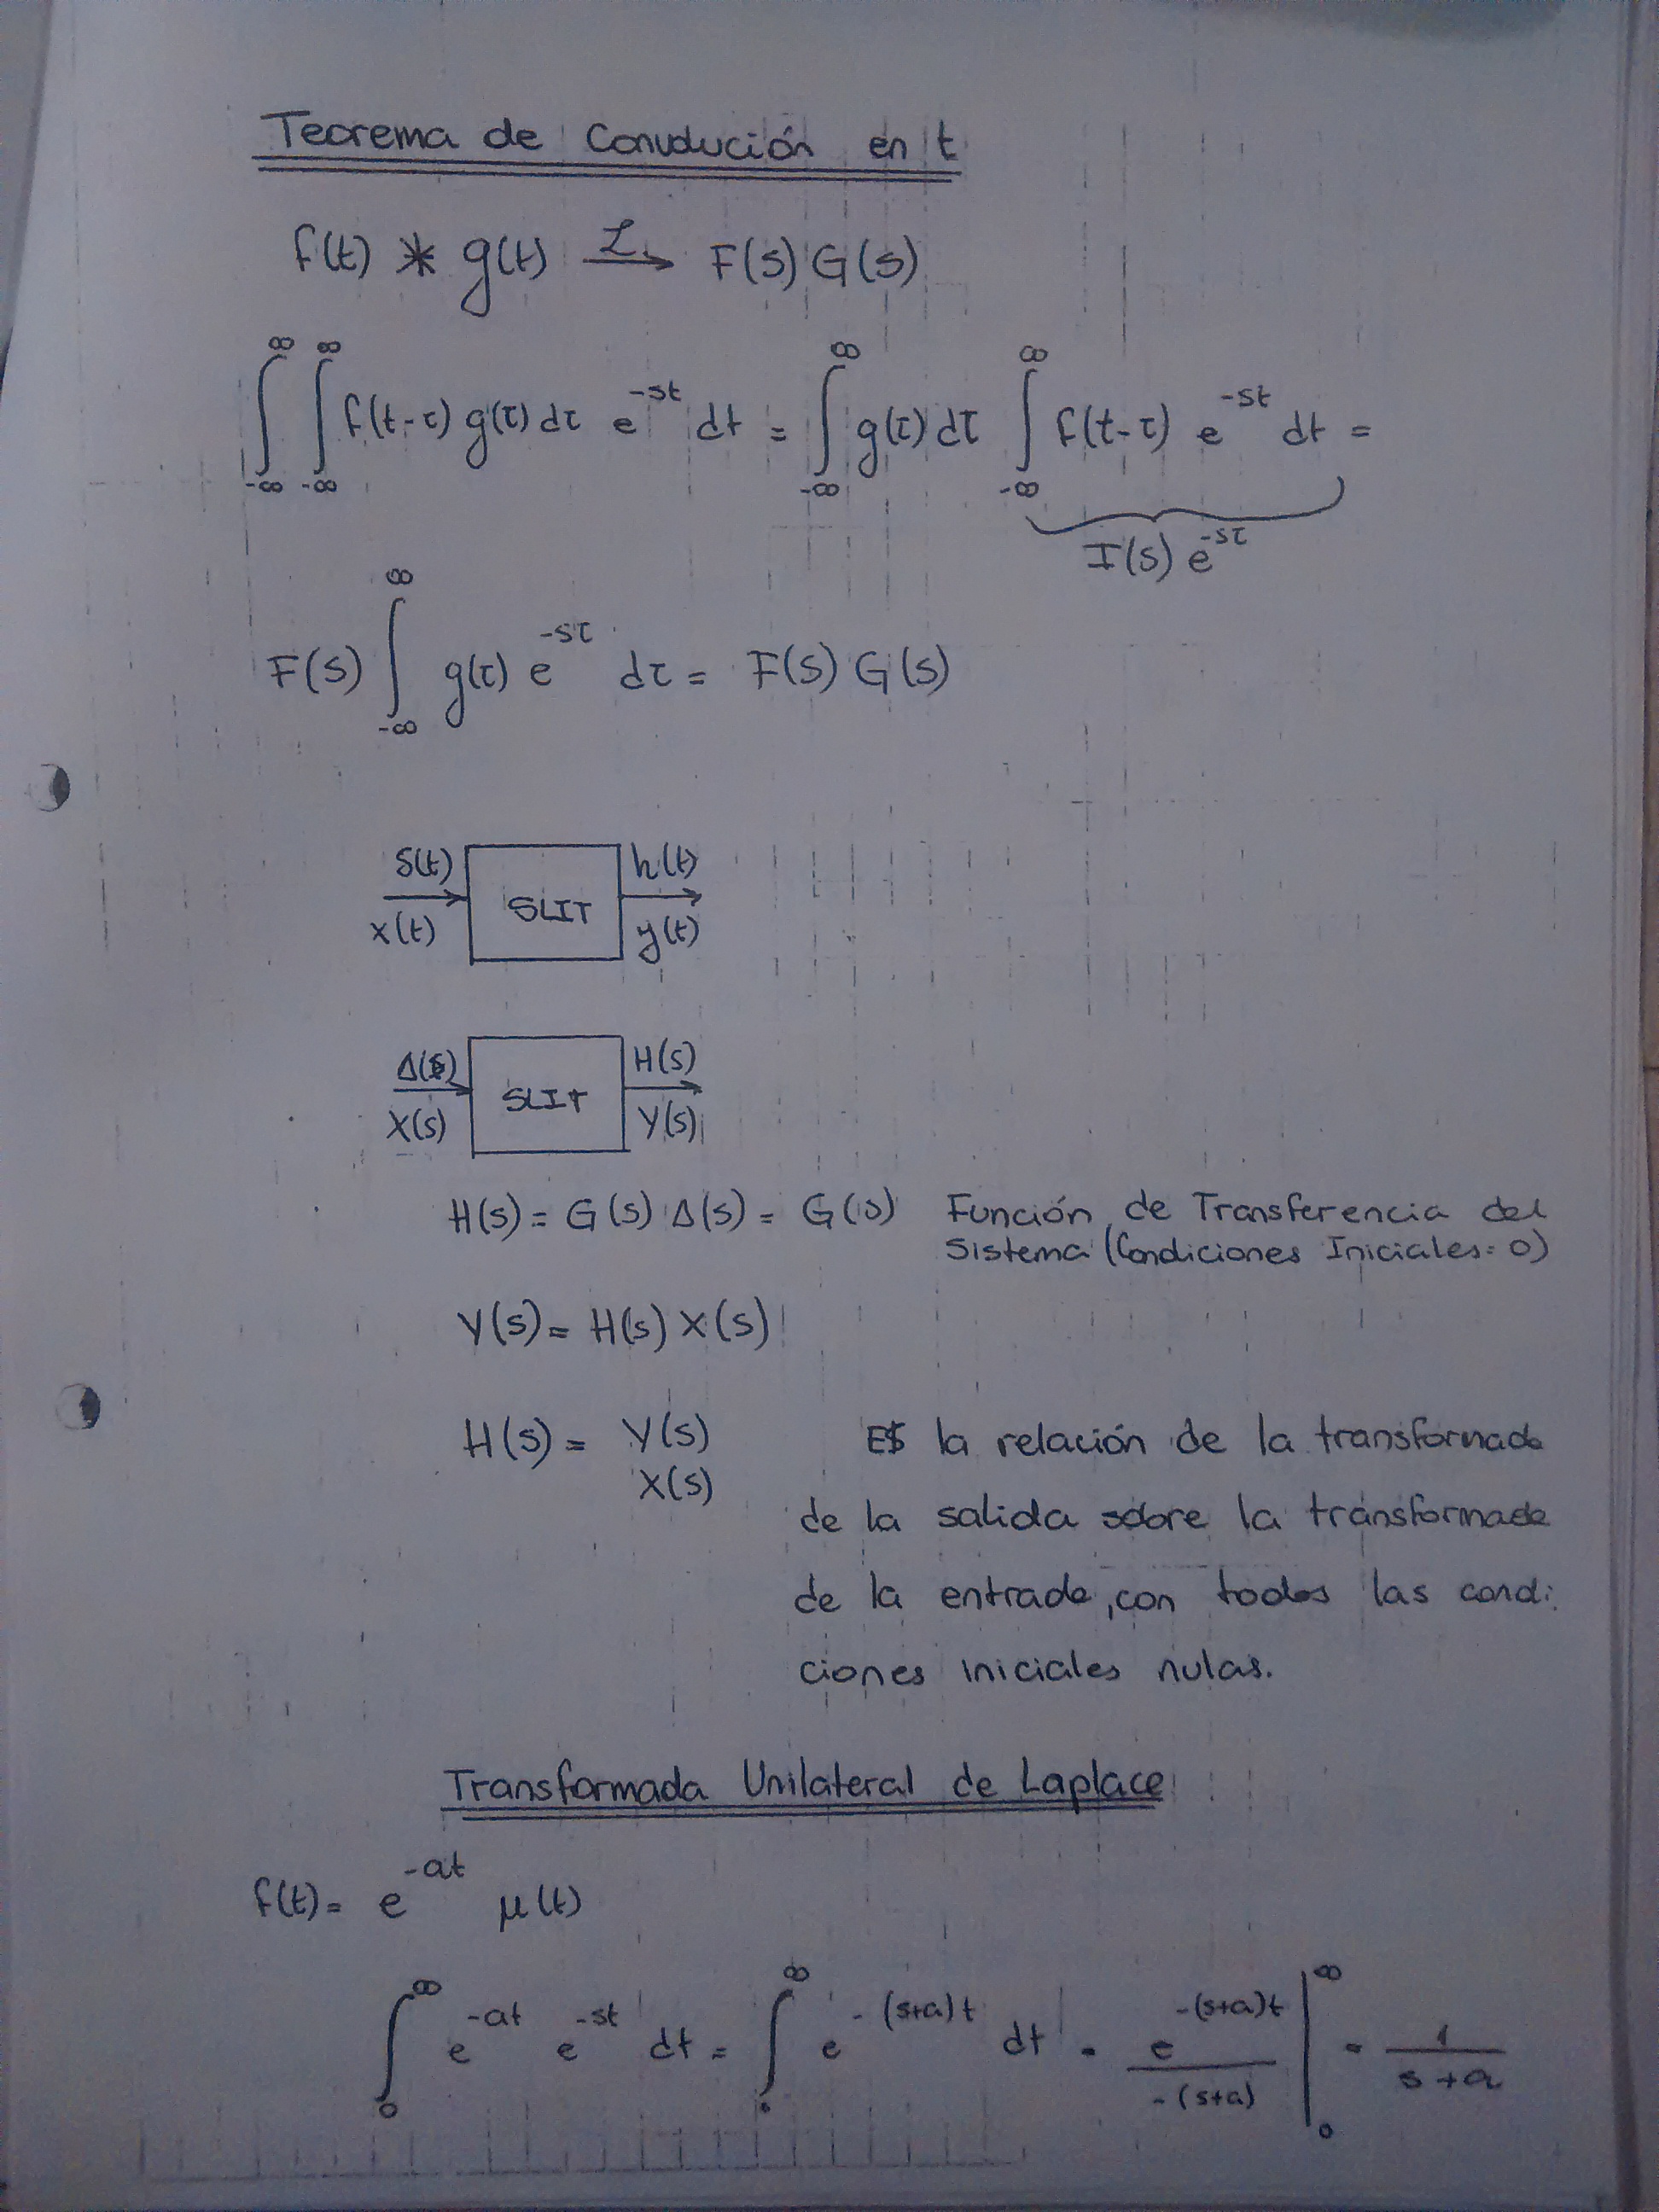 Teorema de Convolución en t
f(t) * g(t) ℒ→ F(s) G(s)
∫_{-∞}^{∞} ∫_{-∞}^{∞} f(t-τ) g(τ) dτ e^{-st} dt = ∫_{-∞}^{∞} g(τ) dτ ∫_{-∞}^{∞} f(t-τ) e^{-st} dt =
I(s) e^{-sτ}
F(s) ∫_{-∞}^{∞} g(τ) e^{-sτ} dτ = F(s) G(s)
δ(t) h(t)
SLIT
x(t) y(t)
Δ(s) H(s)
SLIT
X(s) Y(s)
H(s) = G(s) Δ(s) = G(s) Función de Transferencia del
Sistema (Condiciones Iniciales = 0)
Y(s) = H(s) X(s)
H(s) = Y(s) ES la relación de la transformada
X(s)
de la salida sobre la transformada
de la entrada, con todas las condi
ciones iniciales nulas.
Transformada Unilateral de Laplace
f(t) = e^{-at} μ(t)
∫_{0}^{∞} e^{-at} e^{-st} dt = ∫_{0}^{∞} e^{-(s+a)t} dt = e^{-(s+a)t} / -(s+a) |_{0}^{∞} = 1 / s+a